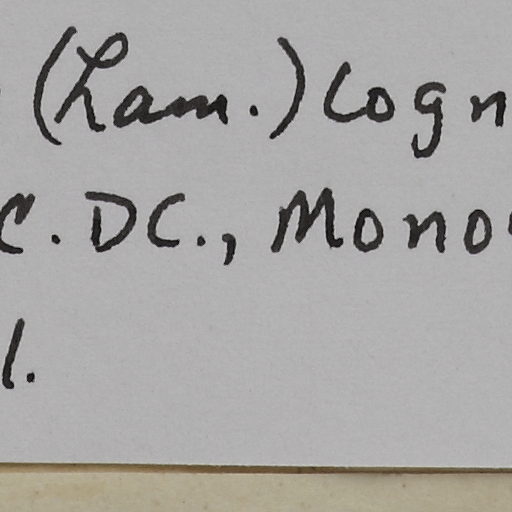 (Lam.) Cogn
C. DC., Mono
1.